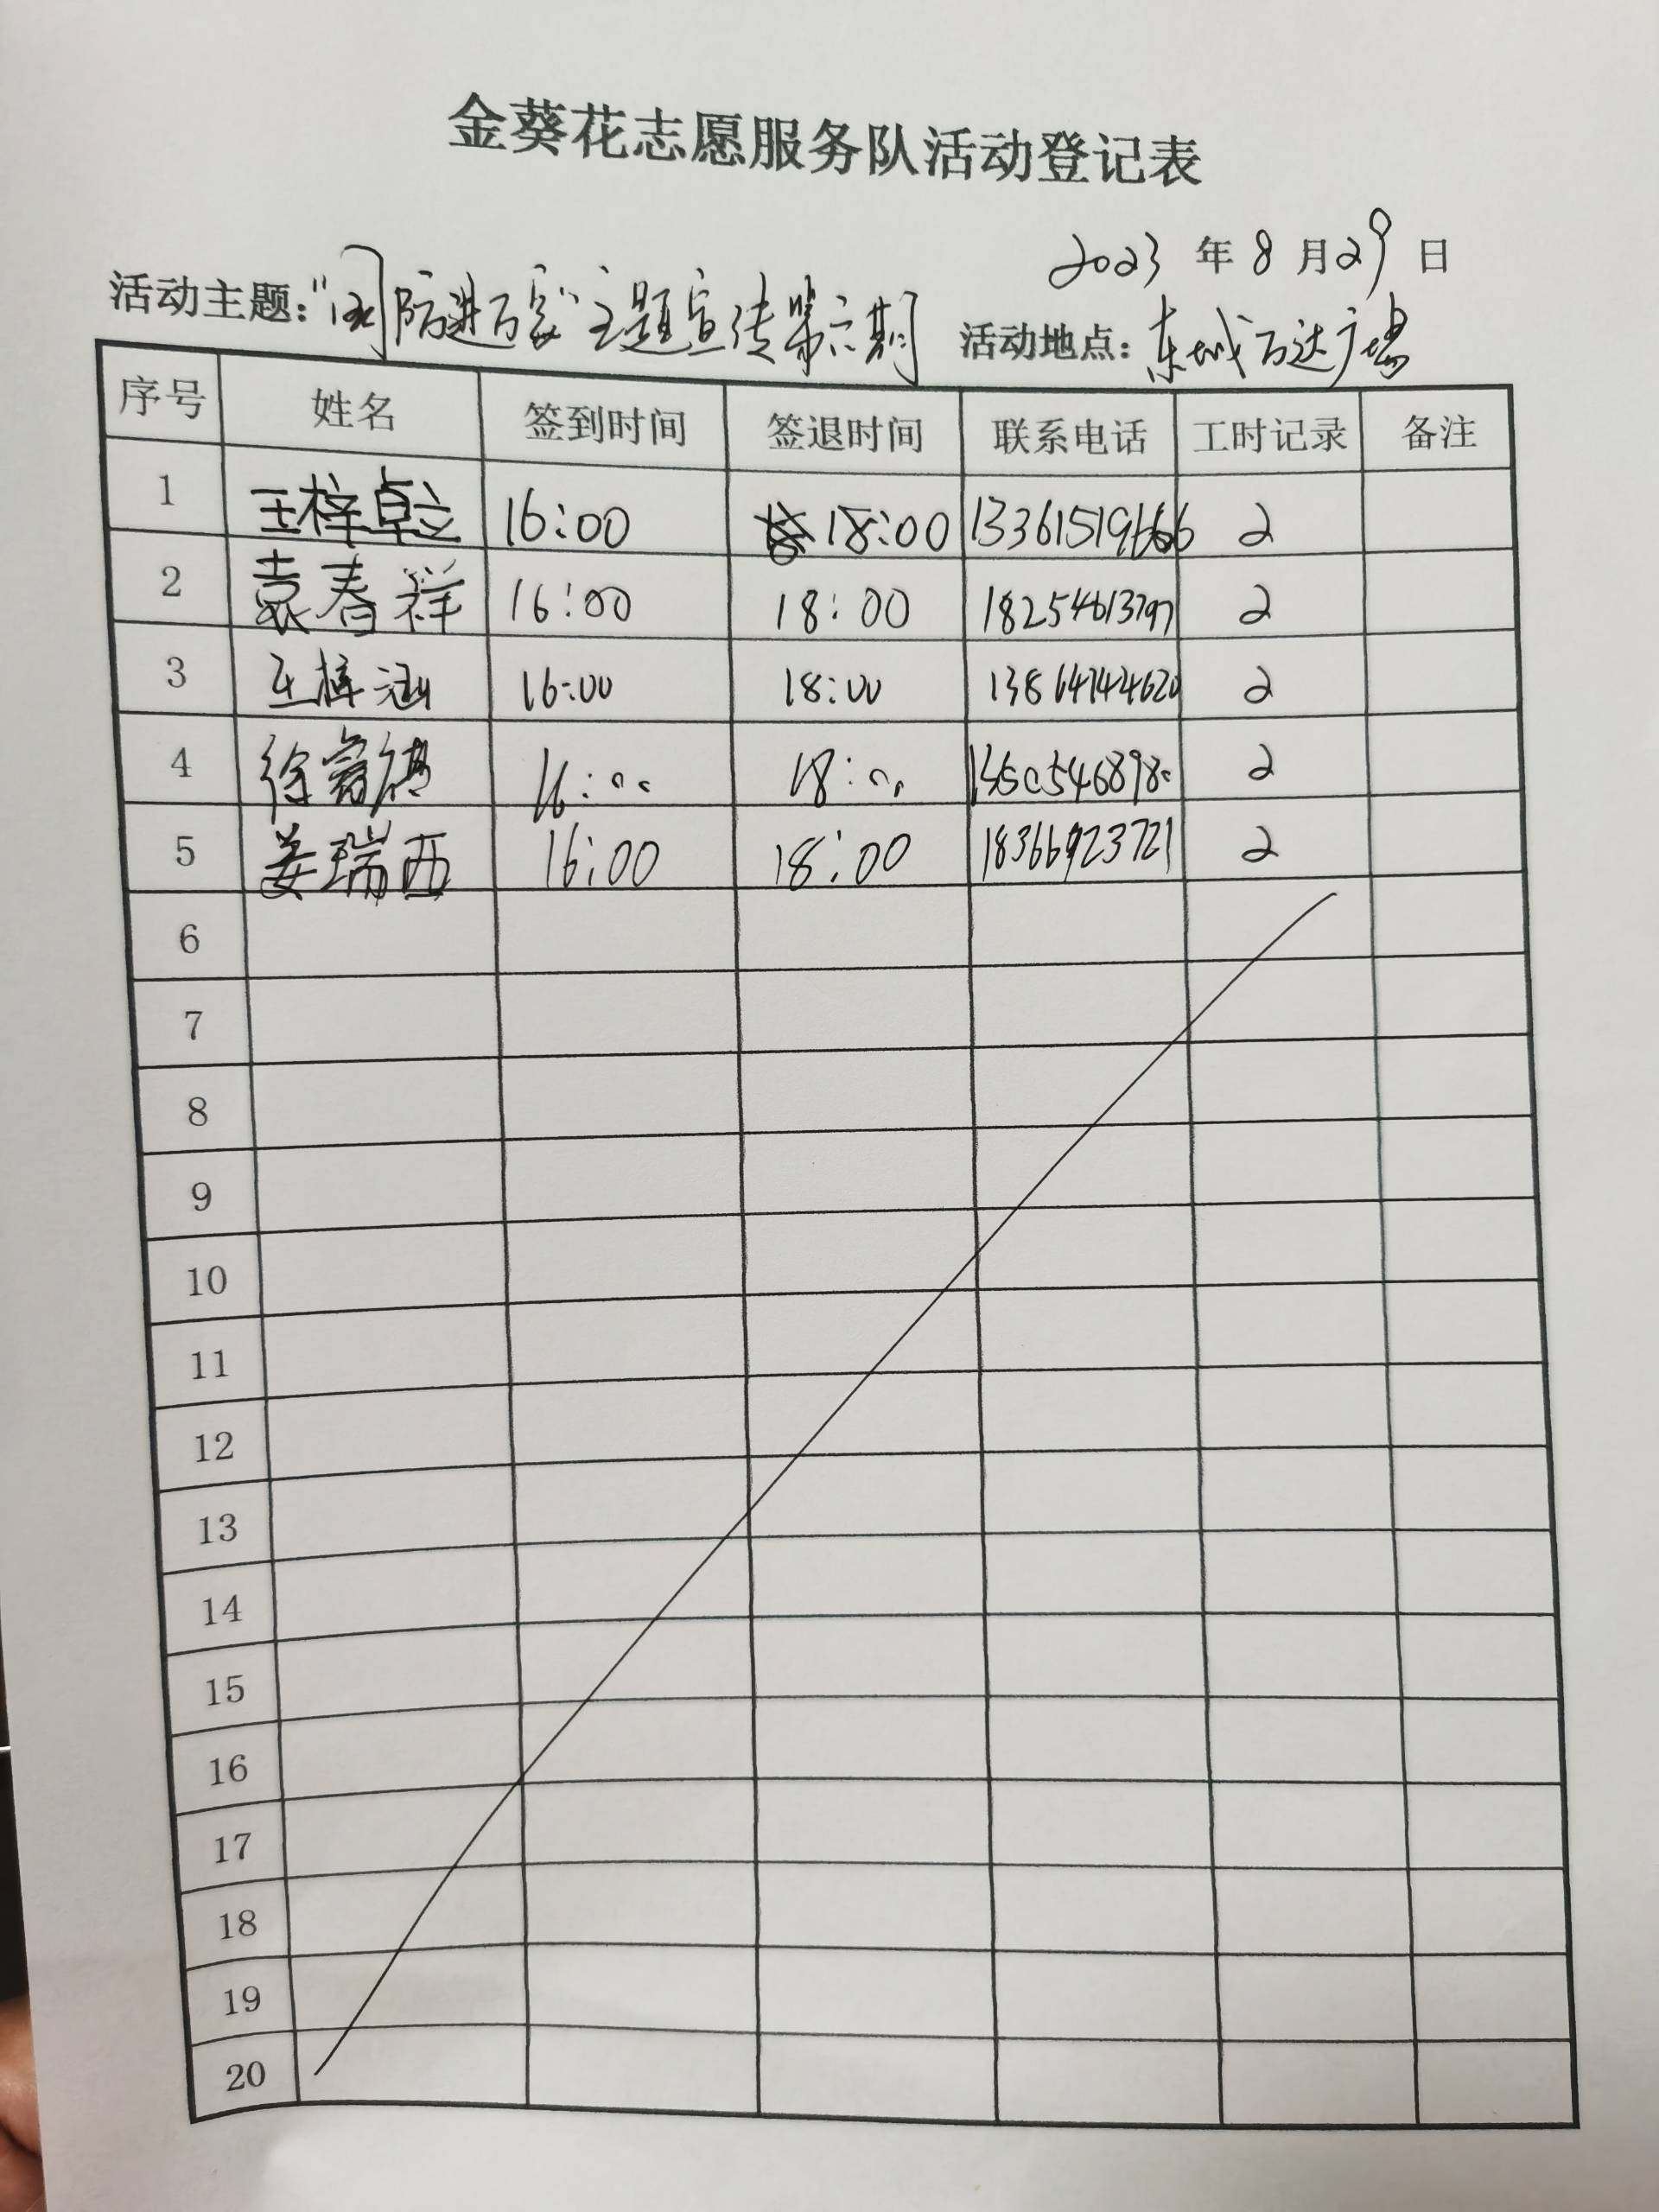 金葵花志愿服务队活动登记表
2023 年 8 月 29 日
活动主题:“国防进万家”主题宣传第六期 活动地点:东城万达广场
序号 姓名 签到时间 签退时间 联系电话 工时记录 备注
1 王梓卓立 16:00 18:00 2
2 袁春祥 16:00 18:00 18254613797 2
3 王梓涵 16:00 18:00 13864744620 2
4 徐 16:00 18:00 2
5 姜瑞西 16:00 18:00 18366923721 2
6
7
8
9
10
11
12
13
14
15
16
17
18
19
20